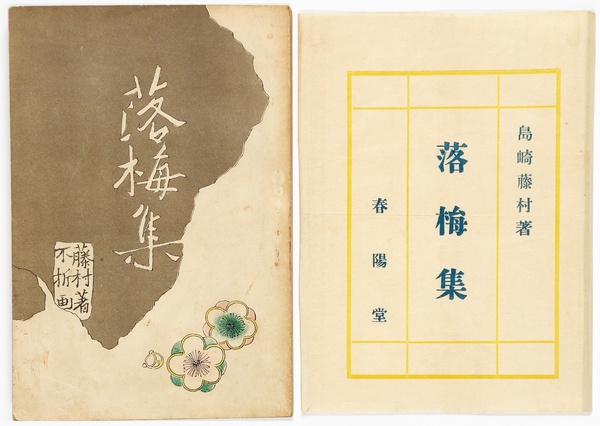 落梅集
藤村著
不折画
島崎藤村著
落梅集
春陽堂